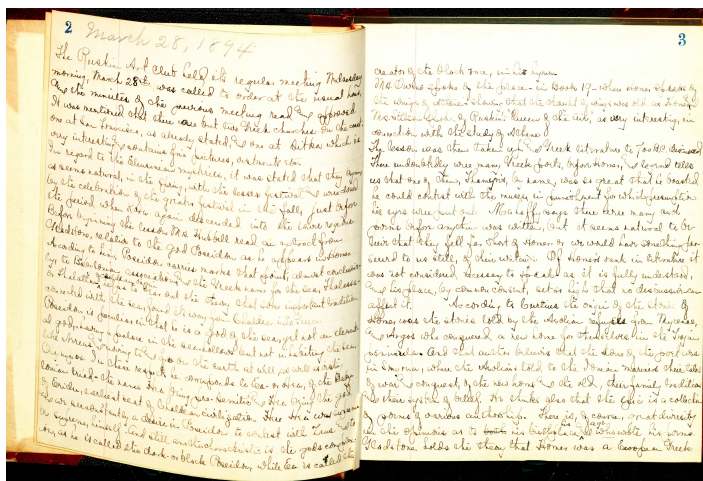 2
March 28, 1894.
The Ruskin Art Club held its regular meeting Wednesday
morning, March 28th was called to order at the usual hour,
and the minutes of the previous meeting read and approved
It was mentioned that there are but two Greek churches on the coast
one at San Francisco, as already stated, and one at Sitka which is
very interesting & contains fine pictures, vestments etc.
In regard to the Eleusinian mysteries, it was stated that they began
as seems natural, in the spring, with the lesser festival and were closed
by the celebration of the greater festival in the fall, just before
the period when Kora again descended into the lower regions
Before beginning the lesson Mrs. Hubbell read an extract from
Gladstone, relative to the God Poseidon as he appears in Homer
According to him Poseidon carries marks that point, almost conclusive-
ly to Babylonian association and the Greek name for the sea, Thalassa
or Thalatta, helps to bear out the theory that some important tradition
connected with the sea, found its way from Chaldea into Greece
Poseidon is peculiar in that he is a god of the sea, yet not an element-
al god, having a palace in the sea-hollows but not inhabiting the sea
like Nereus, having to do on the earth at will as well as visit-
Olympos. In these respects he corresponds to Ea or Hea, of the Baby-
lonian triad - the name Hea being pre-Semitic and Hea being the god
of Eridu, earliest seat of Chaldean civilization. This Hea was supreme
and we see constantly a desire in Poseidon to contest with Zeus and to
be supreme himself. And still another characteristic is the gods complex-
ion, as he is called the dark- or black Poseidon, while Ea is called the
3
creator of the black race, in his hymn.
Mrs. Owens spoke of the place - in Book 19 - when Homer speaks of
the wings of Athene - showing that the idea of wings was old as Homer.
Mrs. Stilson spoke of Ruskin's Queen of the Air, as very interesting, in
connection with the study of Athene.
The lesson was then taken up and Greek literature to 700 B.C. discussed
There undoubtedly were many Greek poets, before Homer, and legend tells
us that one of them, Thamyris, by name, was so great that he boasted
he could contest with the muses, in punishment for which presumption
his eyes were put out. Mahaffy says there were many such
poems before anything was written, but it seems natural to be-
lieve that they fell far short of Homer or we would have something pre-
served to us still, of their writers. Of Homer's rank in literature it
was not considered necessary to speak as it is fully understood,
and his place, by common consent, set so high that no discussion can
affect it. According to Curtius the origin of the stories of
Homer was the stories told by the Aeolian refugees from Mycenae,
and Argos who conquered a new home for themselves in the Trojan
peninsula. And that author believes that the home of the poet was
in Smyrna, where the Aeolians told to the Ionian mariners their tales
of war and conquest, of the new home and the old, their family traditions
and their system of belief. He thinks also that the epic is a collection
of poems of various authorship. There is, of course, great diversity
in the opinions as to both his birthplace, his age and who wrote his poems.
Gladstone holds the theory that Homer was a European Greek